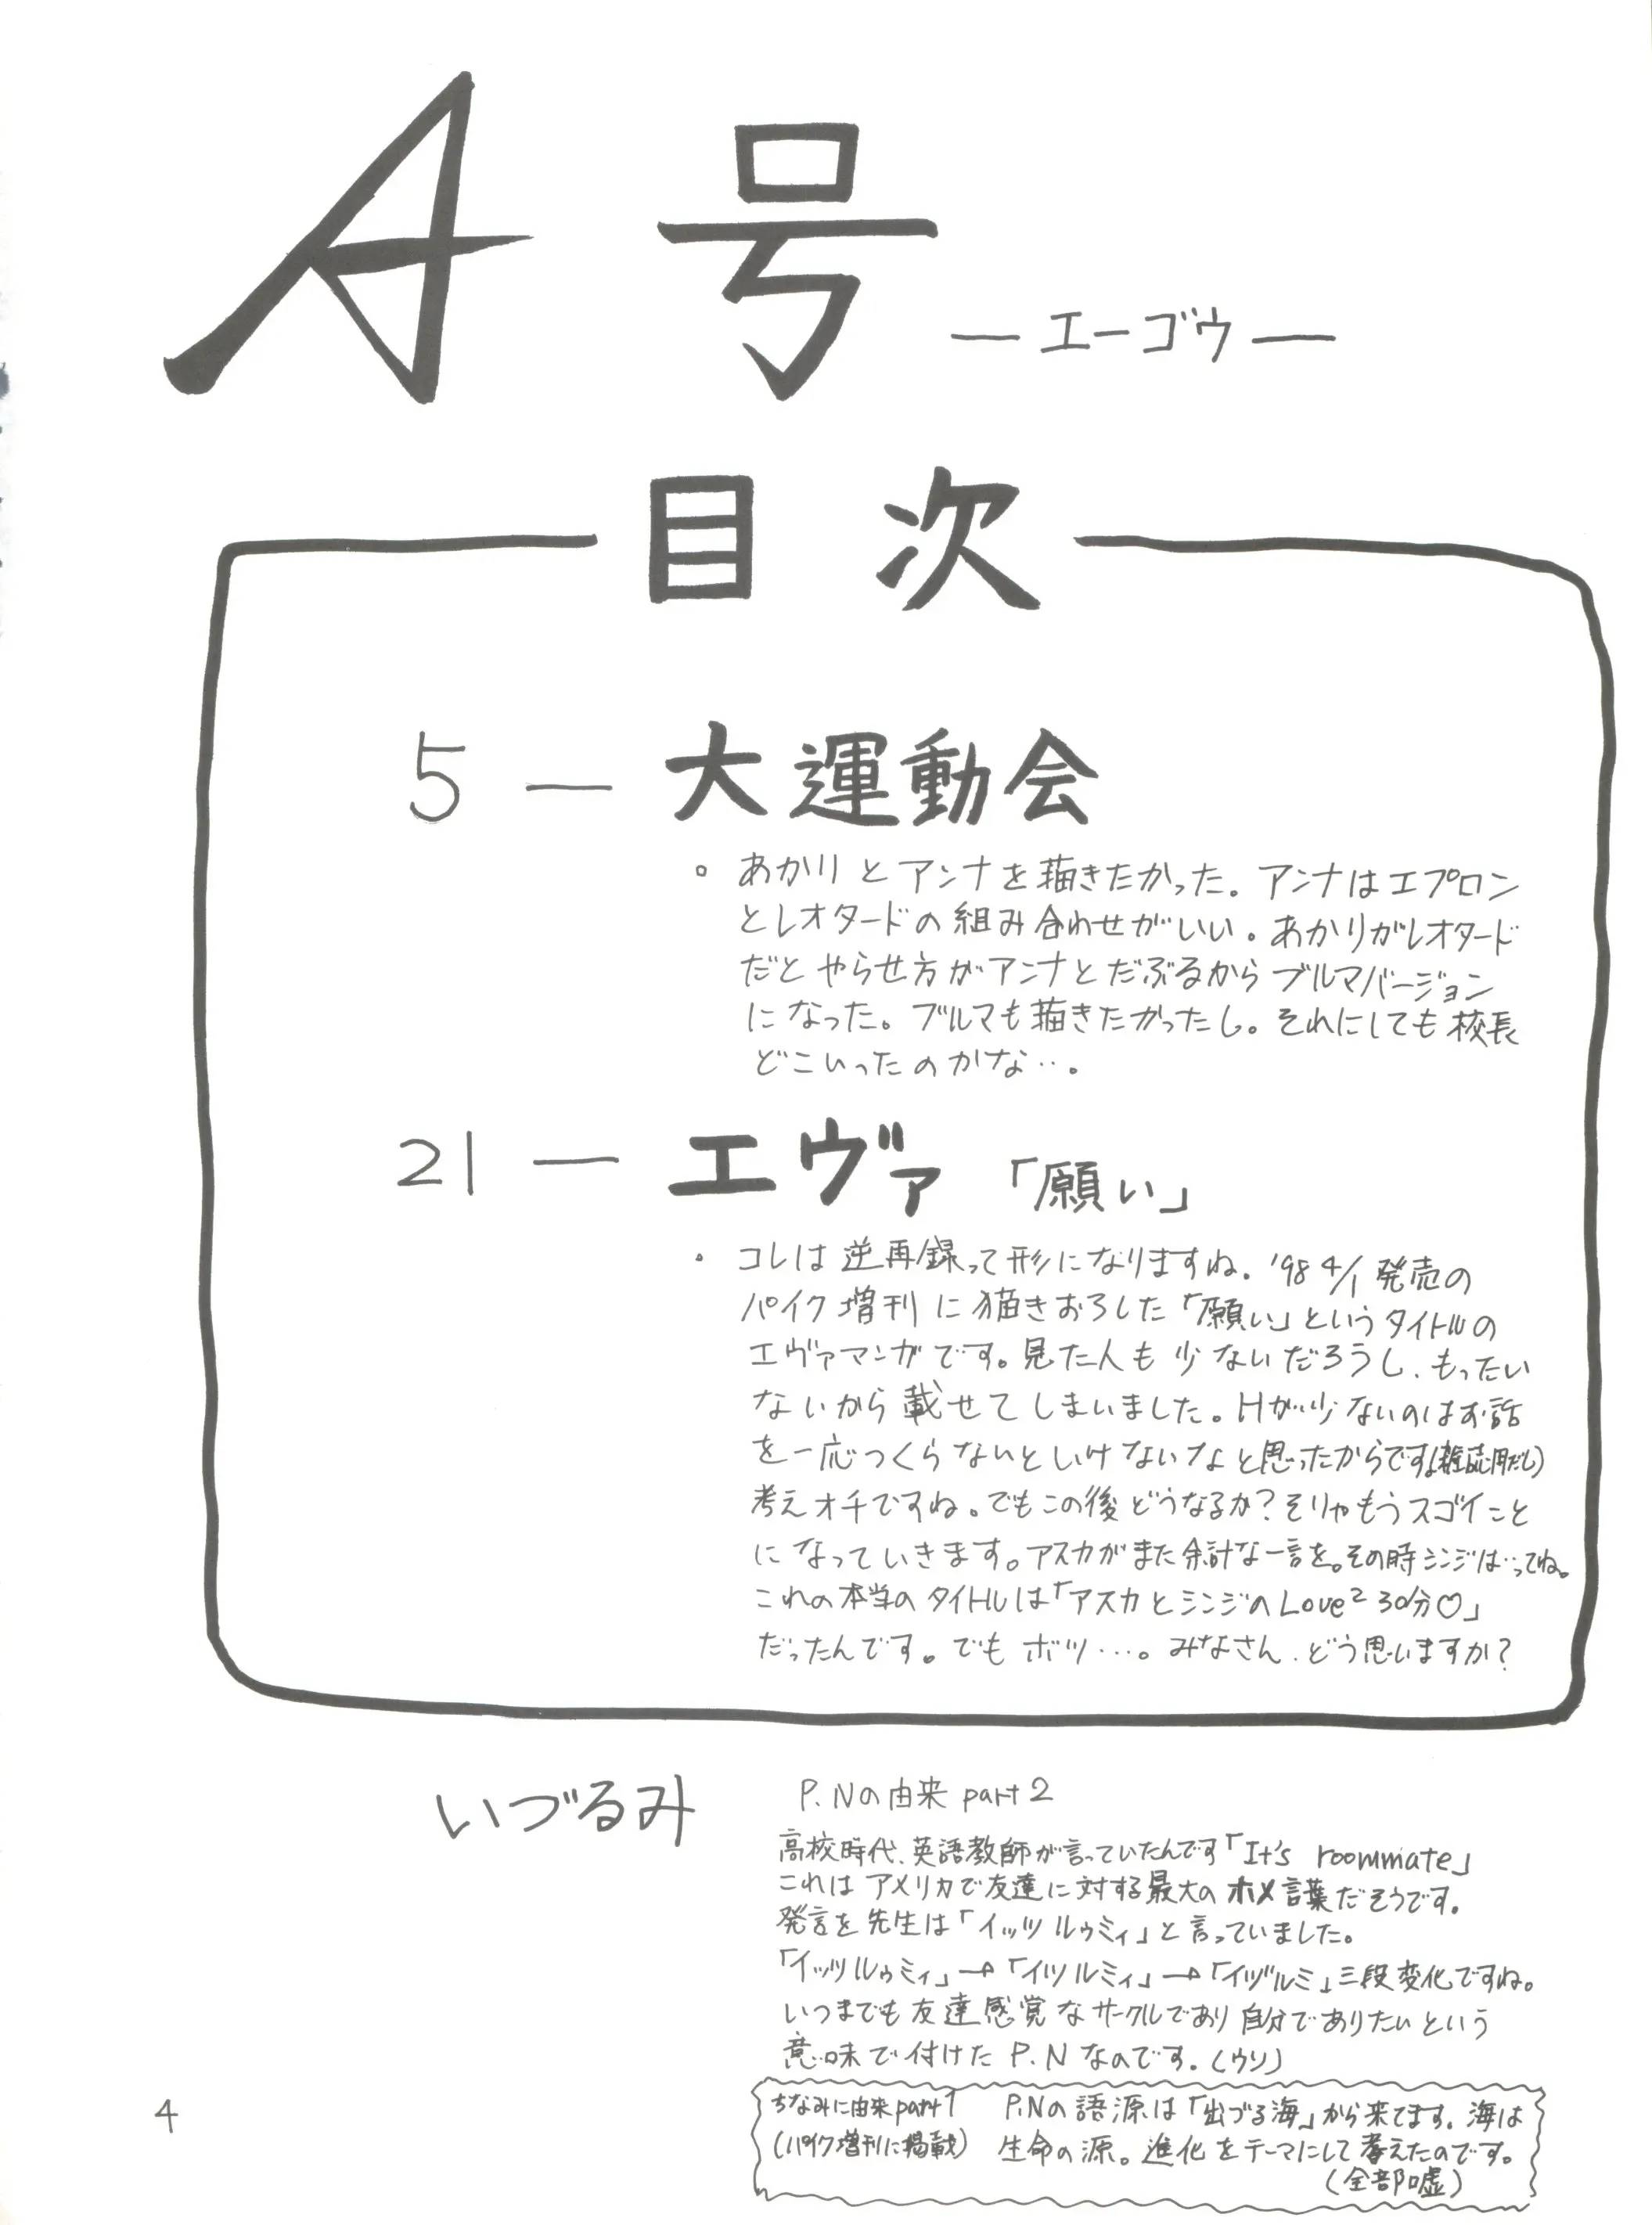 A号 ―エーゴウ―
目次
5 ― 大運動会
。あかりとアンナを描きたかった。アンナはエプロン
とレオタードの組み合わせがいい。あかりがレオタード
だとやらせ方がアンナとだぶるからブルマバージョン
になった。ブルマも描きたかったし。それにしても校長
どこいったのかな…。
21 ― エヴァ「願い」
・コレは逆再録って形になりますね。'98 4/1発売の
パイク増刊に描きおろした「願い」というタイトルの
エヴァマンガです。見た人も少ないだろうし、もったい
ないから載せてしまいました。Hが少ないのはお話
を一応つくらないといけないなと思ったからです(雑誌用だし)
考えオチですね。でもこの後どうなるか?そりゃもうスゴイこと
になっていきます。アスカがまた余計な一言を。その時シンジは…ってね。
これの本当のタイトルは「アスカとシンジのLove² 30分♡」
だったんです。でもボツ…。みなさん、どう思いますか?
いづるみ
P.Nの由来 part2
高校時代、英語教師が言っていたんです「It's roommate」
これはアメリカで友達に対する最大のホメ言葉だそうです。
発言を先生は「イッツ ルゥミィ」と言っていました。
「イッツルゥミィ」→「イツルミィ」→「イヅルミ」三段変化ですね。
いつまでも友達感覚なサークルであり自分でありたいという
意味で付けたP.Nなのです。(ウソ)
ちなみに由来part1
(パイク増刊に掲載)
P.Nの語源は「出づる海」から来てます。海は
生命の源。進化をテーマにして考えたのです。
(全部嘘)
4